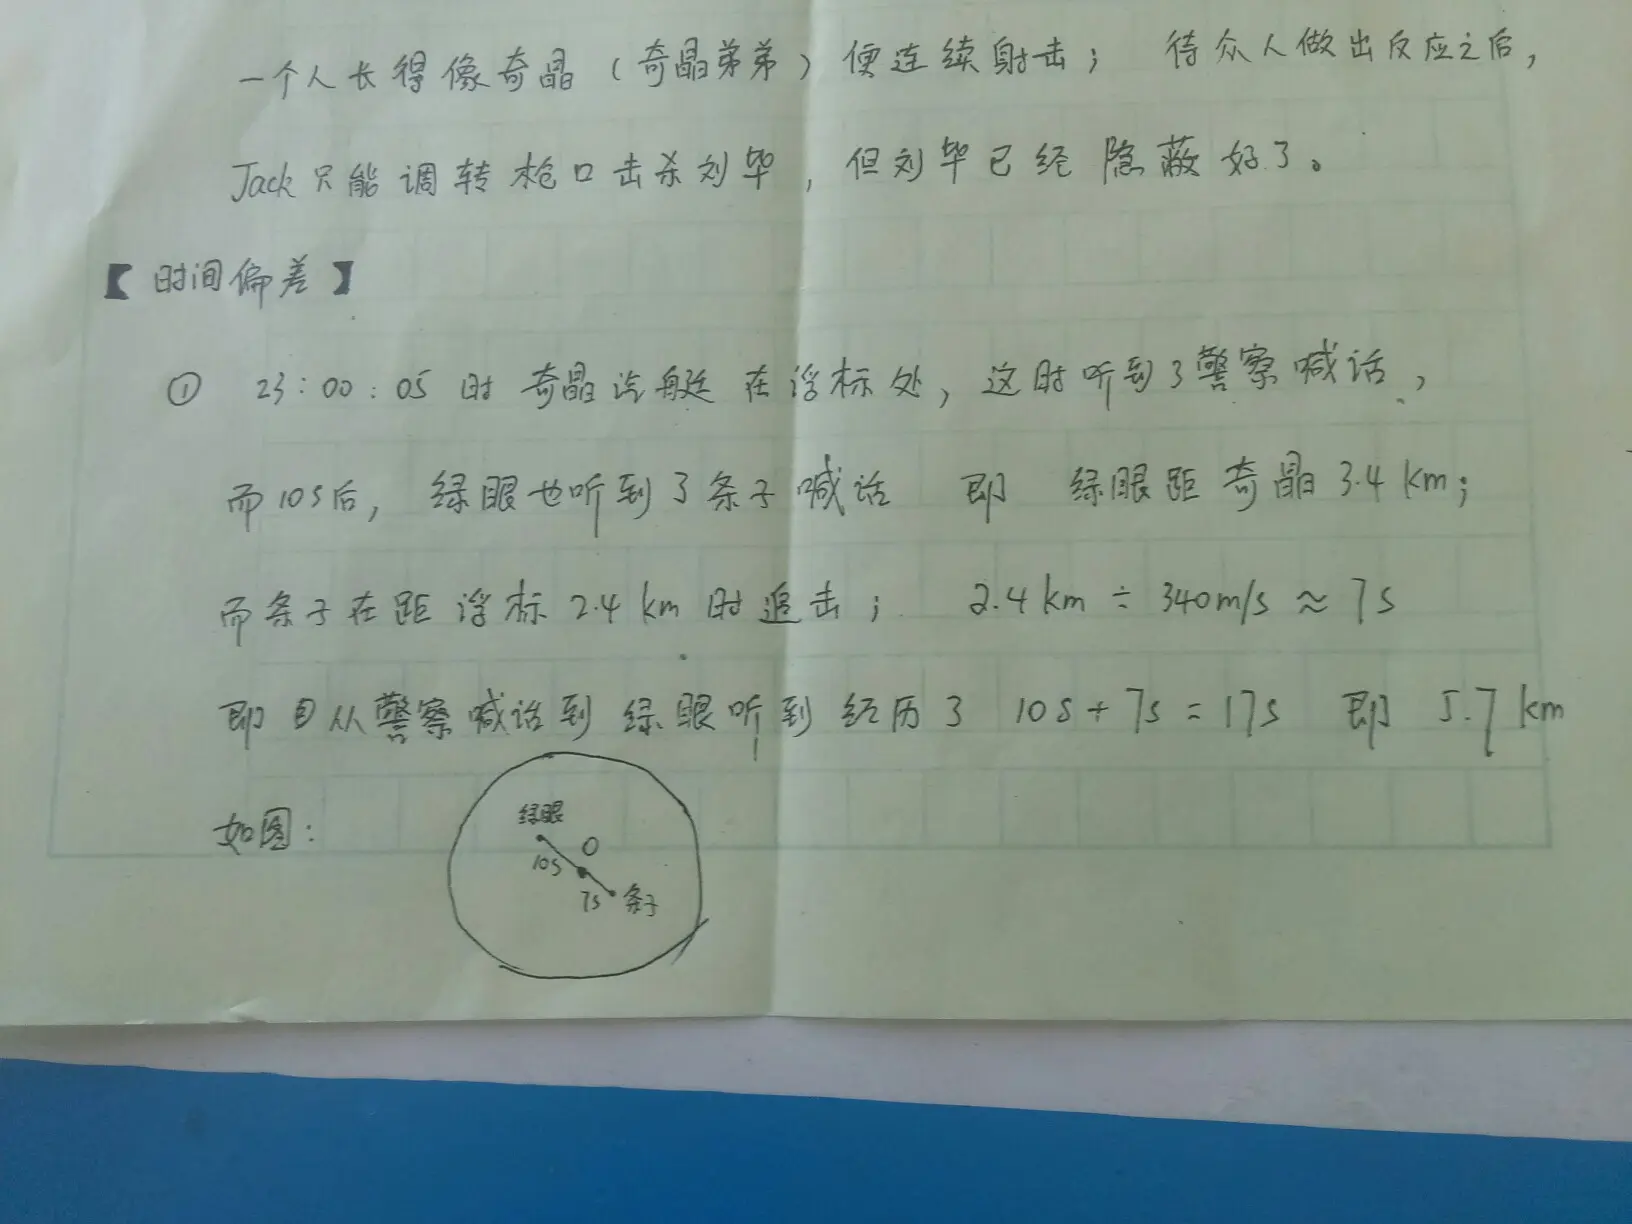 一个人长得像奇晶（奇晶弟弟）便连续射击； 待众人做出反应之后，
Jack只能调转枪口击杀刘毕，但刘毕已经隐蔽好了。
【时间偏差】
① 23:00:05时奇晶汽艇在浮标处，这时听到了警察喊话，
而10s后，绿眼也听到了条子喊话 即 绿眼距奇晶3.4km；
而条子在距浮标2.4km时追击； 2.4km÷340m/s≈7s
即自从警察喊话到绿眼听到经历了 10s+7s=17s 即 5.7km
如图：
绿眼
O
10s
7s 条子